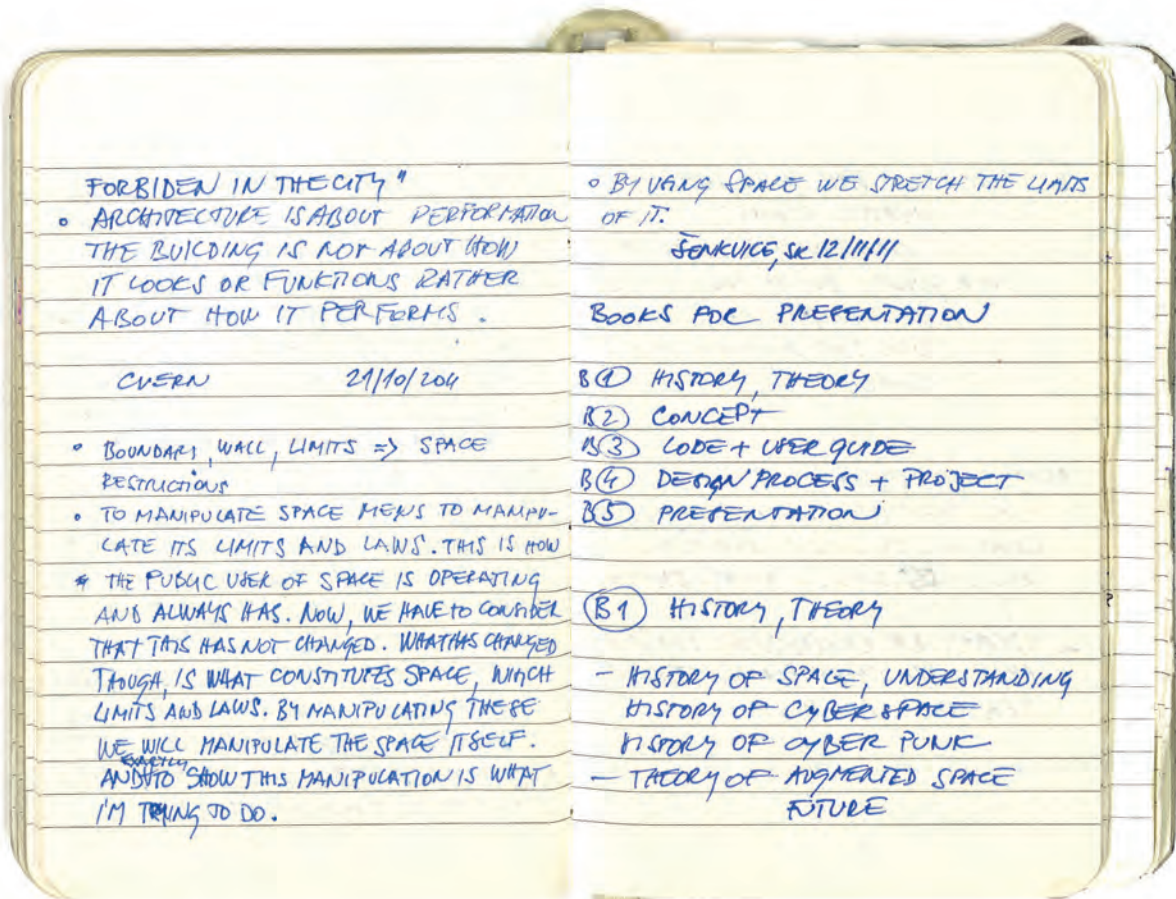 FORBIDEN IN THE CITY"
• ARCHITECTURE IS ABOUT PERFORMATION
THE BUILDING IS NOT ABOUT HOW
IT LOOKS OR FUNKTIONS RATHER
ABOUT HOW IT PERFORMS.
CVERN 21/10/2011
• BOUNDARY, WALL, LIMITS => SPACE
RESTRICTIONS
• TO MANIPULATE SPACE MENS TO MANIPU-
LATE ITS LIMITS AND LAWS. THIS IS HOW
* THE PUBLIC USER OF SPACE IS OPERATING
AND ALWAYS HAS. NOW, WE HAVE TO CONSIDER
THAT THIS HAS NOT CHANGED. WHAT HAS CHANGED
THOUGH, IS WHAT CONSTITUTES SPACE, WHICH
LIMITS AND LAWS. BY MANIPULATING THESE
WE WILL MANIPULATE THE SPACE ITSELF.
AND EXACTLY TO SHOW THIS MANIPULATION IS WHAT
I'M TRYING TO DO.
• BY USING SPACE WE STRETCH THE LIMITS
OF IT.
ŠENKVICE, SK 12/11/11
BOOKS FOR PRESENTATION
B① HISTORY, THEORY
B② CONCEPT
B③ CODE + USER GUIDE
B④ DESIGN PROCESS + PROJECT
B⑤ PRESENTATION
B1 HISTORY, THEORY
- HISTORY OF SPACE, UNDERSTANDING
HISTORY OF CYBERSPACE
HISTORY OF CYBER PUNK
- THEORY OF AUGMENTED SPACE
FUTURE